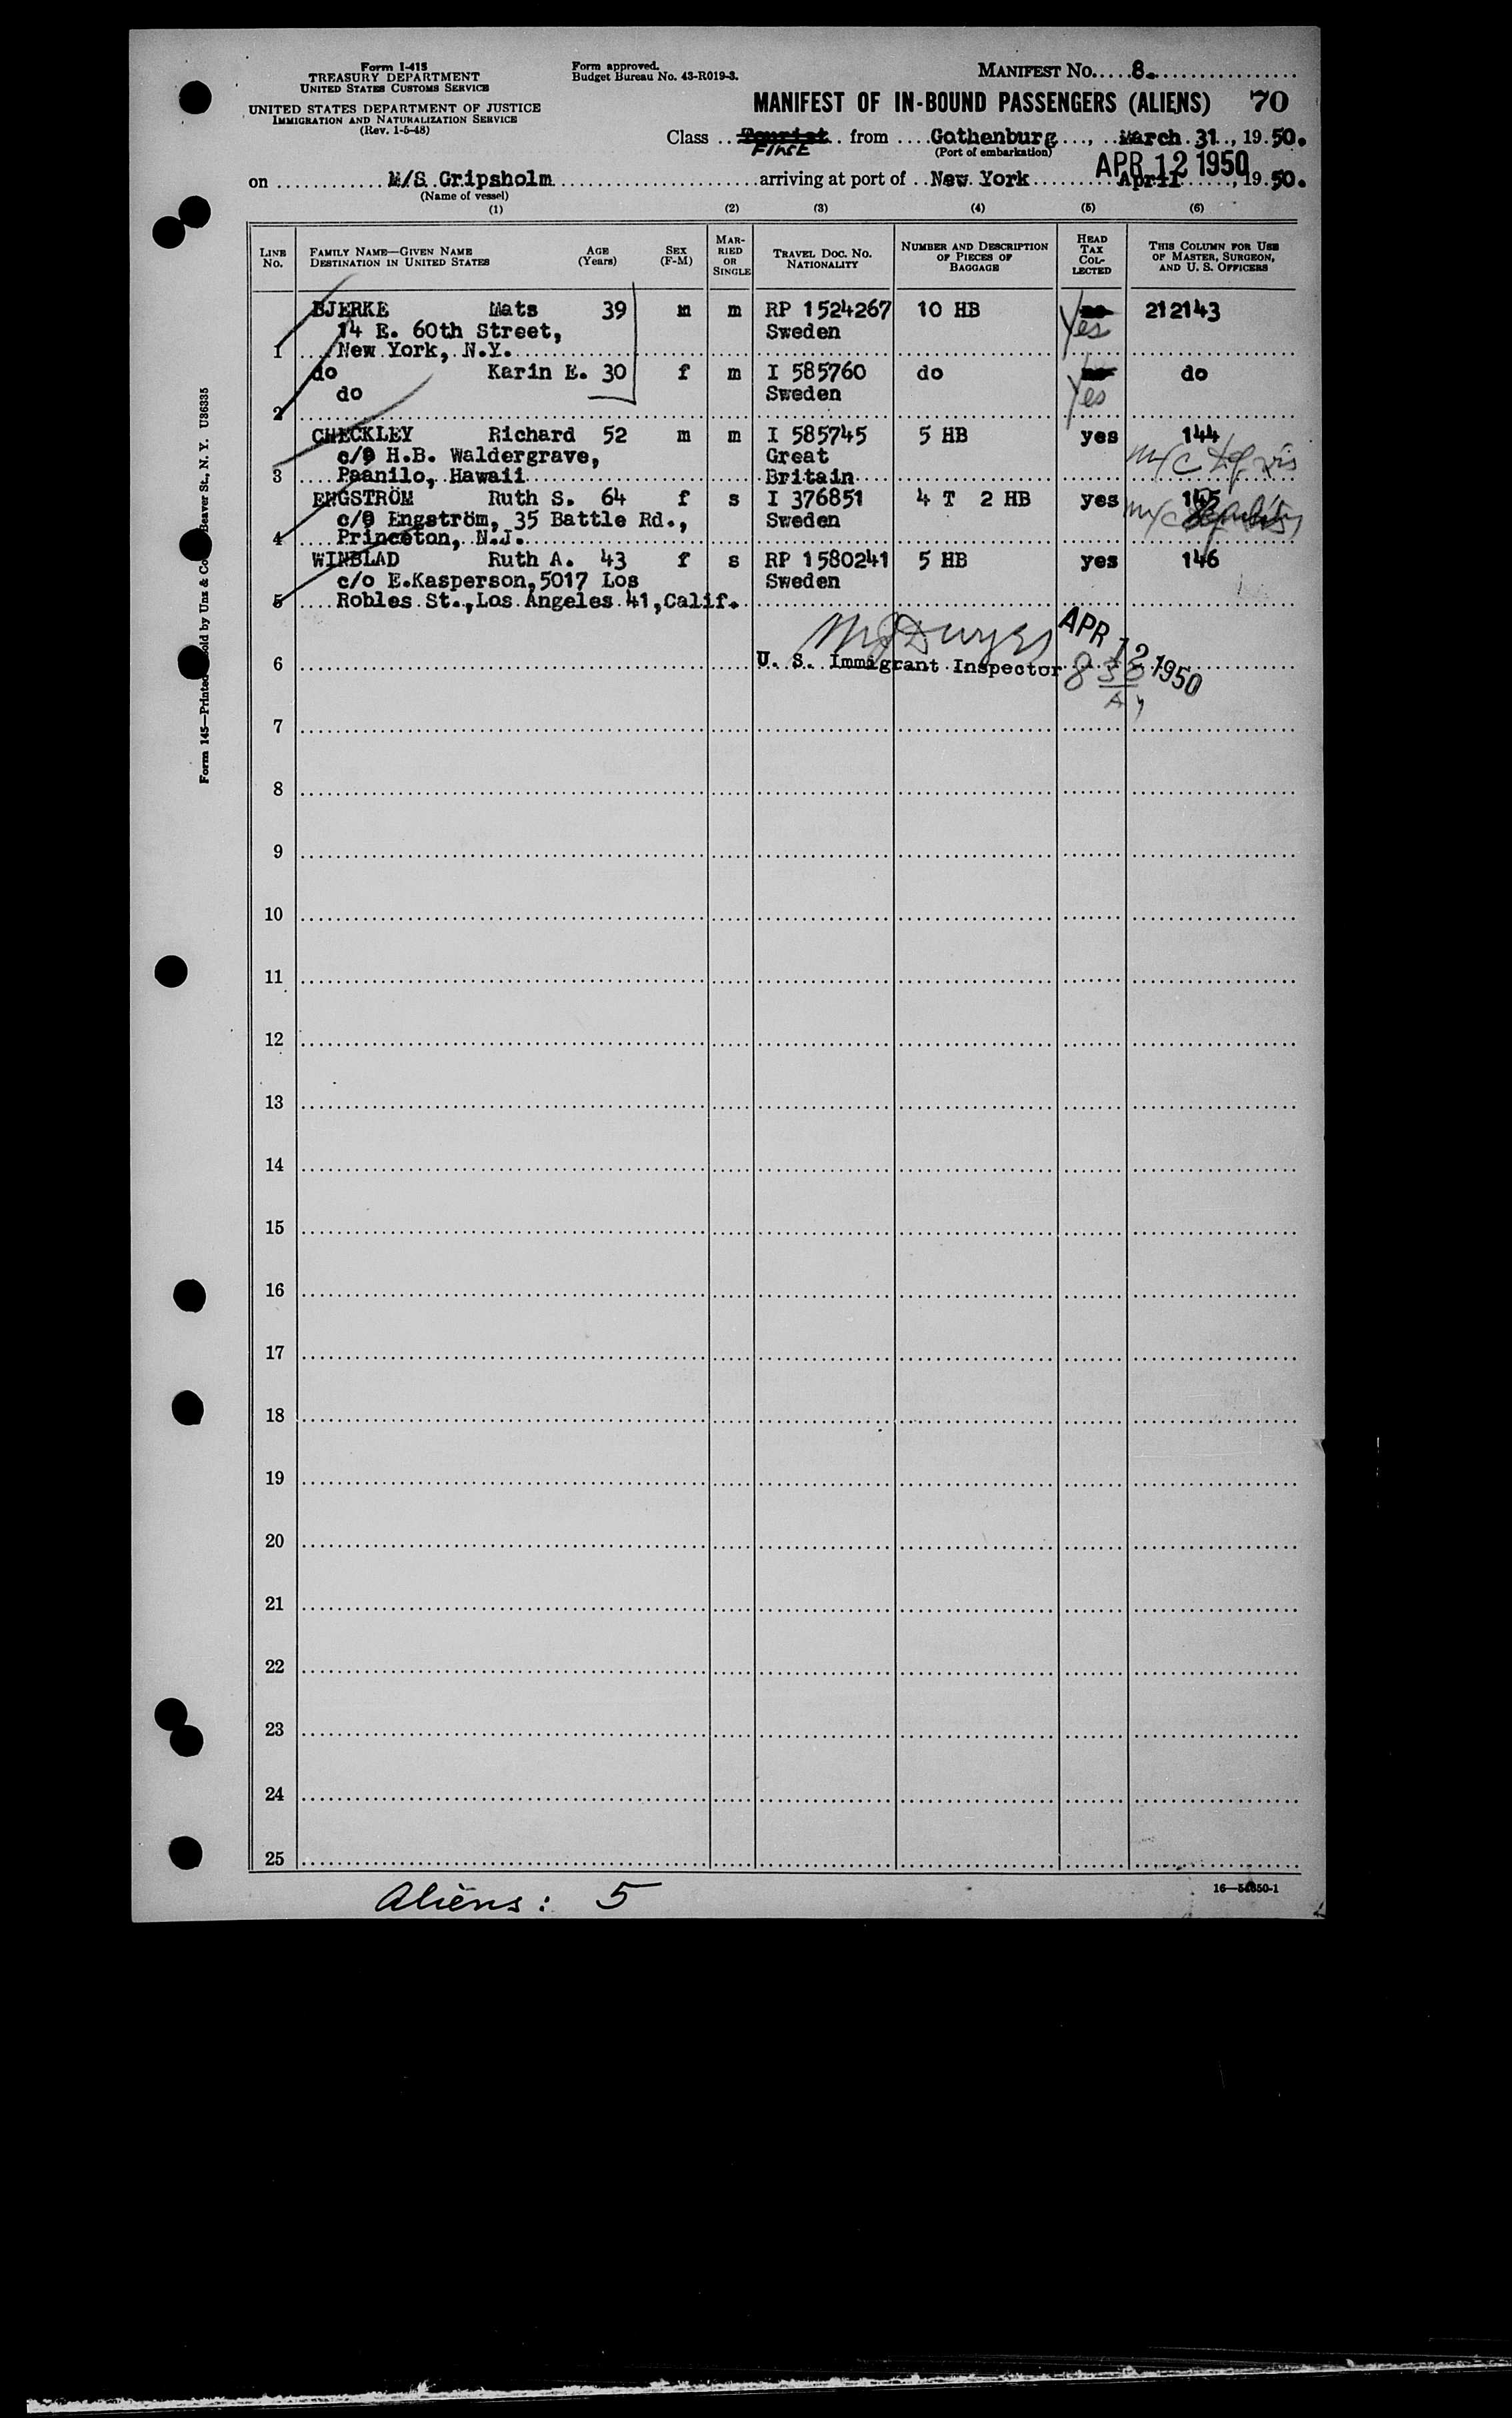 Form I-415
TREASURY DEPARTMENT
UNITED STATES CUSTOMS SERVICE
UNITED STATES DEPARTMENT OF JUSTICE
IMMIGRATION AND NATURALIZATION SERVICE
(Rev. 1-5-48)
Form approved.
Budget Bureau No. 43-R019-3.
MANIFEST No. 8.
MANIFEST OF IN-BOUND PASSENGERS (ALIENS) 70
Class Tourist from Gothenburg, March 31, 1950.
First (Port of embarkation)
APR 12 1950
on M/S Gripsholm arriving at port of New York April, 1950.
(Name of vessel)
(1) (2) (3) (4) (5) (6)
LINE No. FAMILY NAME—GIVEN NAME DESTINATION IN UNITED STATES AGE (Years) SEX (F-M) MARRIED OR SINGLE TRAVEL DOC. NO. NATIONALITY NUMBER AND DESCRIPTION OF PIECES OF BAGGAGE HEAD TAX COLLECTED THIS COLUMN FOR USE OF MASTER, SURGEON, AND U. S. OFFICERS
BJERKE Mats 39 m m RP 1524267 10 HB no Yes 212143
14 E. 60th Street, Sweden
1 New York, N.Y.
do Karin E. 30 f m I 585760 do no Yes do
do Sweden
2
CHECKLEY Richard 52 m m I 585745 5 HB yes 144
c/o H.B. Waldergrave, Great m/c
3 Paanilo, Hawaii Britain
ENGSTRÖM Ruth S. 64 f s I 376851 4 T 2 HB yes 145
c/o Engström, 35 Battle Rd., Sweden m/c
4 Princeton, N.J.
WINBLAD Ruth A. 43 f s RP 1580241 5 HB yes 146
c/o E.Kasperson,5017 Los Sweden
5 Robles St.,Los Angeles 41,Calif.
APR 12 1950
6 U. S. Immigrant Inspector 8 30
7
8
9
10
11
12
13
14
15
16
17
18
19
20
21
22
23
24
25
Aliens: 5